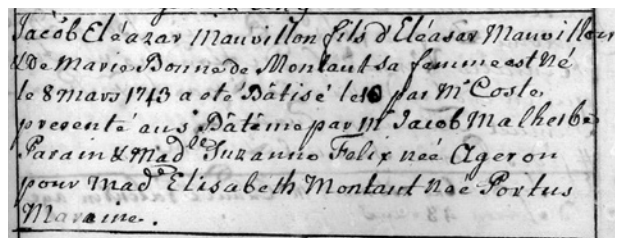 Jacob Eléazar Mauvillon fils d'Eléasar Mauvillon
& de Marie Bonne de Montaut sa femme est Né
le 8 Mars 1743 a eté Bâtisé le 10 par Mr Coste
presenté au s Bâtême par Mr Jacob Malherbe
Parain & Madlle Suzanne Felix neé Ageron
pour Madle Elisabeth Montaut Neé Portus
Maraine.